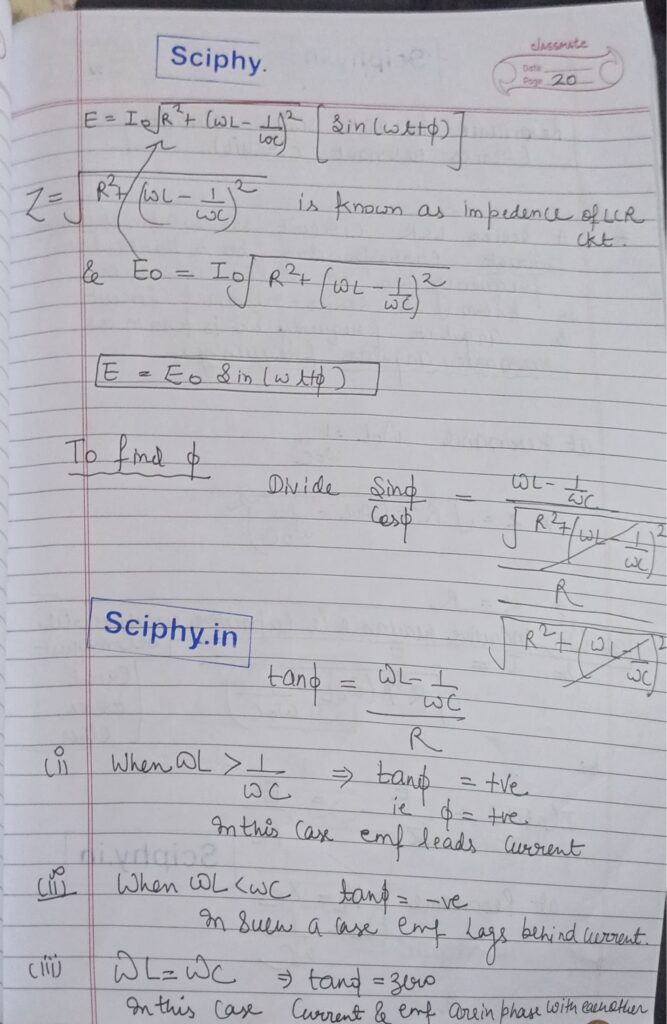 Sciphy.
classmate
Date
Page 20
E = I₀√(R² + (ωL - 1/ωC)²) [Sin(ωt+φ)]
Z = √(R² + (ωL - 1/ωC)²) is known as impedence of LCR
ckt.
& E₀ = I₀√(R² + (ωL - 1/ωC)²)
E = E₀ Sin(ωt+φ)
To find φ
Divide Sinφ/Cosφ = ((ωL - 1/ωC)/√(R² + (ωL - 1/ωC)²))/(R/√(R² + (ωL - 1/ωC)²))
Sciphy.in
tanφ = (ωL - 1/ωC)/R
(i) When ωL > 1/ωC ⇒ tanφ = +ve
ie φ = +ve
In this case emf leads current
(ii) When ωL < ωC tanφ = -ve
In such a case emf lags behind current.
(iii) ωL = ωC ⇒ tanφ = zero
In this case current & emf are in phase with each other